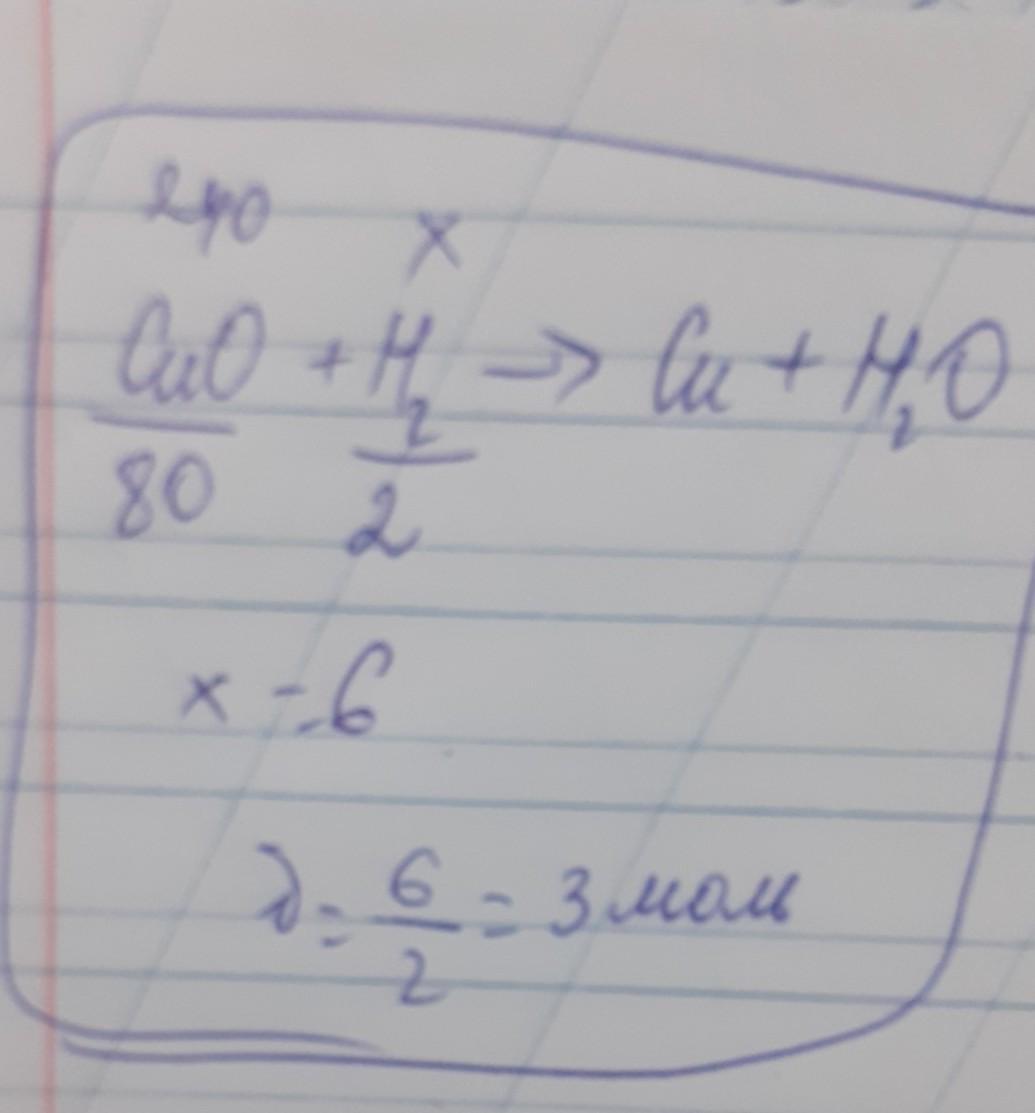 240 x
CuO + H₂ → Cu + H₂O
80 2
x = 6
ν = 6/2 = 3 моль